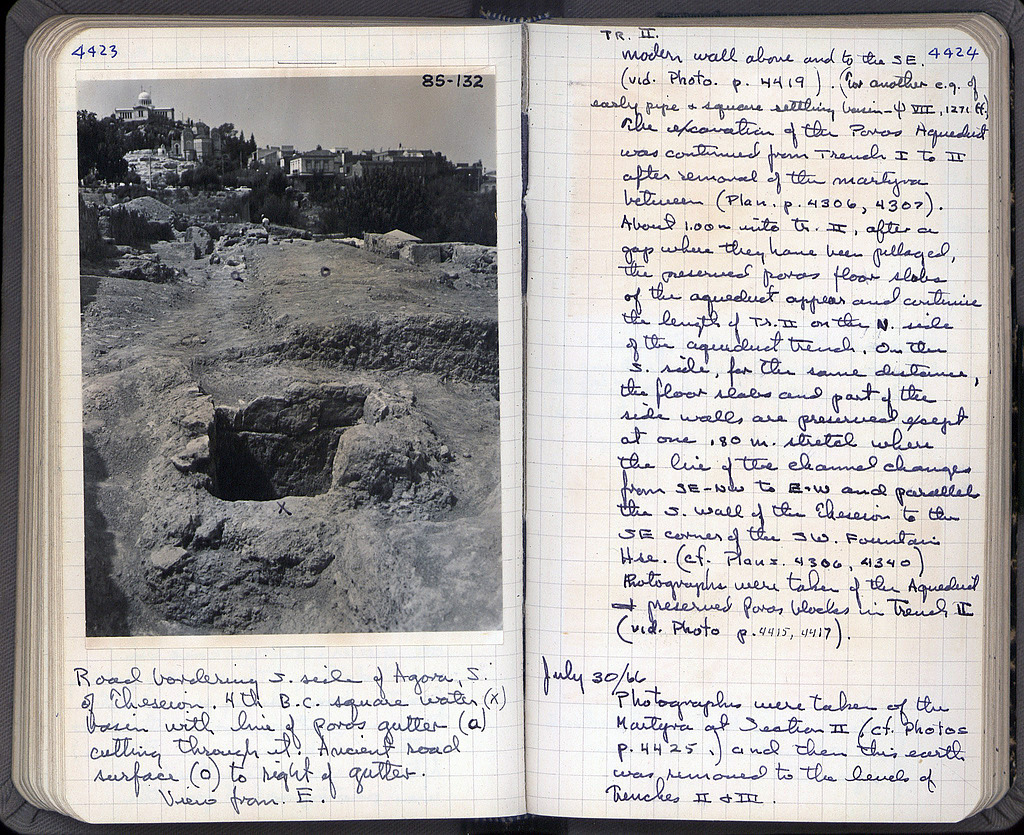 4423
85-132
X
Road bordering S. side of Agora, S.
of Theseion. 4th B.C. square water (x)
basin with line of poros gutter (a)
cutting through it. Ancient road
surface (o) to right of gutter.
View from E.
4424
TR. II.
modern wall above and to the SE.
(vid. Photo. p. 4419). (For another e.g. of
early pipe + square settling basin - VIII, 1271 ff.)
The excavation of the Poros Aqueduct
was continued from Trench I to II
after removal of the martyra
between (Plan. p. 4306, 4307).
About 1.00m into Tr. II, after a
gap where they have been pillaged,
the preserved poros floor slabs
of the aqueduct appear and continue
the length of Tr. II on the N. side
of the aqueduct trench. On the
S. side, for the same distance,
the floor slabs and part of the
side walls are preserved except
at one .80 m. stretch where
the line of the channel changes
from SE-NW to E-W and parallels
the S. wall of the to the
SE corner of the SW. Fountain
Hse. (cf. Plans. 4306, 4340)
Photographs were taken of the Aqueduct
+ preserved poros blocks in Trench II
(vid. Photo p. 4415, 4417).
July 30/66
Photographs were taken of the
Martyra at Section II (cf. Photos
p. 4425.) and then this earth
was removed to the levels of
Trenches II + III.